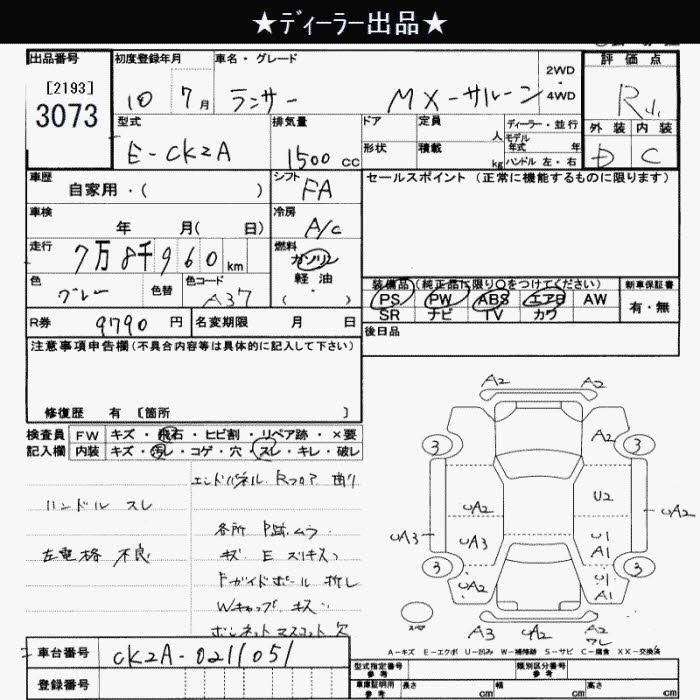 ★ディーラー出品★
出品番号
[2193]
3073
初度登録年月
10 7月
車名・グレード
ランサー MX-サルーン
2WD
・
4WD
評価点
R
外装 内装
D C
型式
E-CK2A
排気量
1500 cc
ドア
定員
人
形状
積載
kg
ディーラー・並行
モデル年式 年
ハンドル 左・右
車歴
自家用・( )
シフト
FA
セールスポイント (正常に機能するものに限ります)
車検
年 月( 日)
冷房
A/c
走行
7万8千960km
燃料
ガソリン
軽油
( ・ )
色
グレー
色替
色コード
A37
装備品(純正品に限り○をつけてください)
PS PW ABS エアB AW
SR ナビ TV カワ
新車保証書
有・無
R券 9790円
名変期限 月 日
後日品
注意事項申告欄(不具合内容等は具体的に記入して下さい)
修復歴 有 [箇所 ]
検査員
記入欄
FW キズ・飛石・ヒビ割・リペア跡・×要
内装 キズ・汚レ・コゲ・穴・スレ・キレ・破レ
エンドパネル Rフロア 曲り
ハンドル スレ
各所 P跡ムラ
左電格 不良
キズ E スリキズ
Fガイドポール 折レ
Wキャップ キズ
ボンネットマスコット欠
A2 A2
3 A2 3
U2
UA2 UA2
UA3 UA3 U1
A1
3 3
UA2 U1
A1
A3 UA2 A2
A-キズ E-エクボ U-凹み W-補修跡 S-サビ C-腐食 XX-交換済
車台番号 CK2A-0211051
登録番号
型式指定番号
参考
類別区分番号
参考
車庫証明用
参考
長さ cm 幅 cm 高さ cm